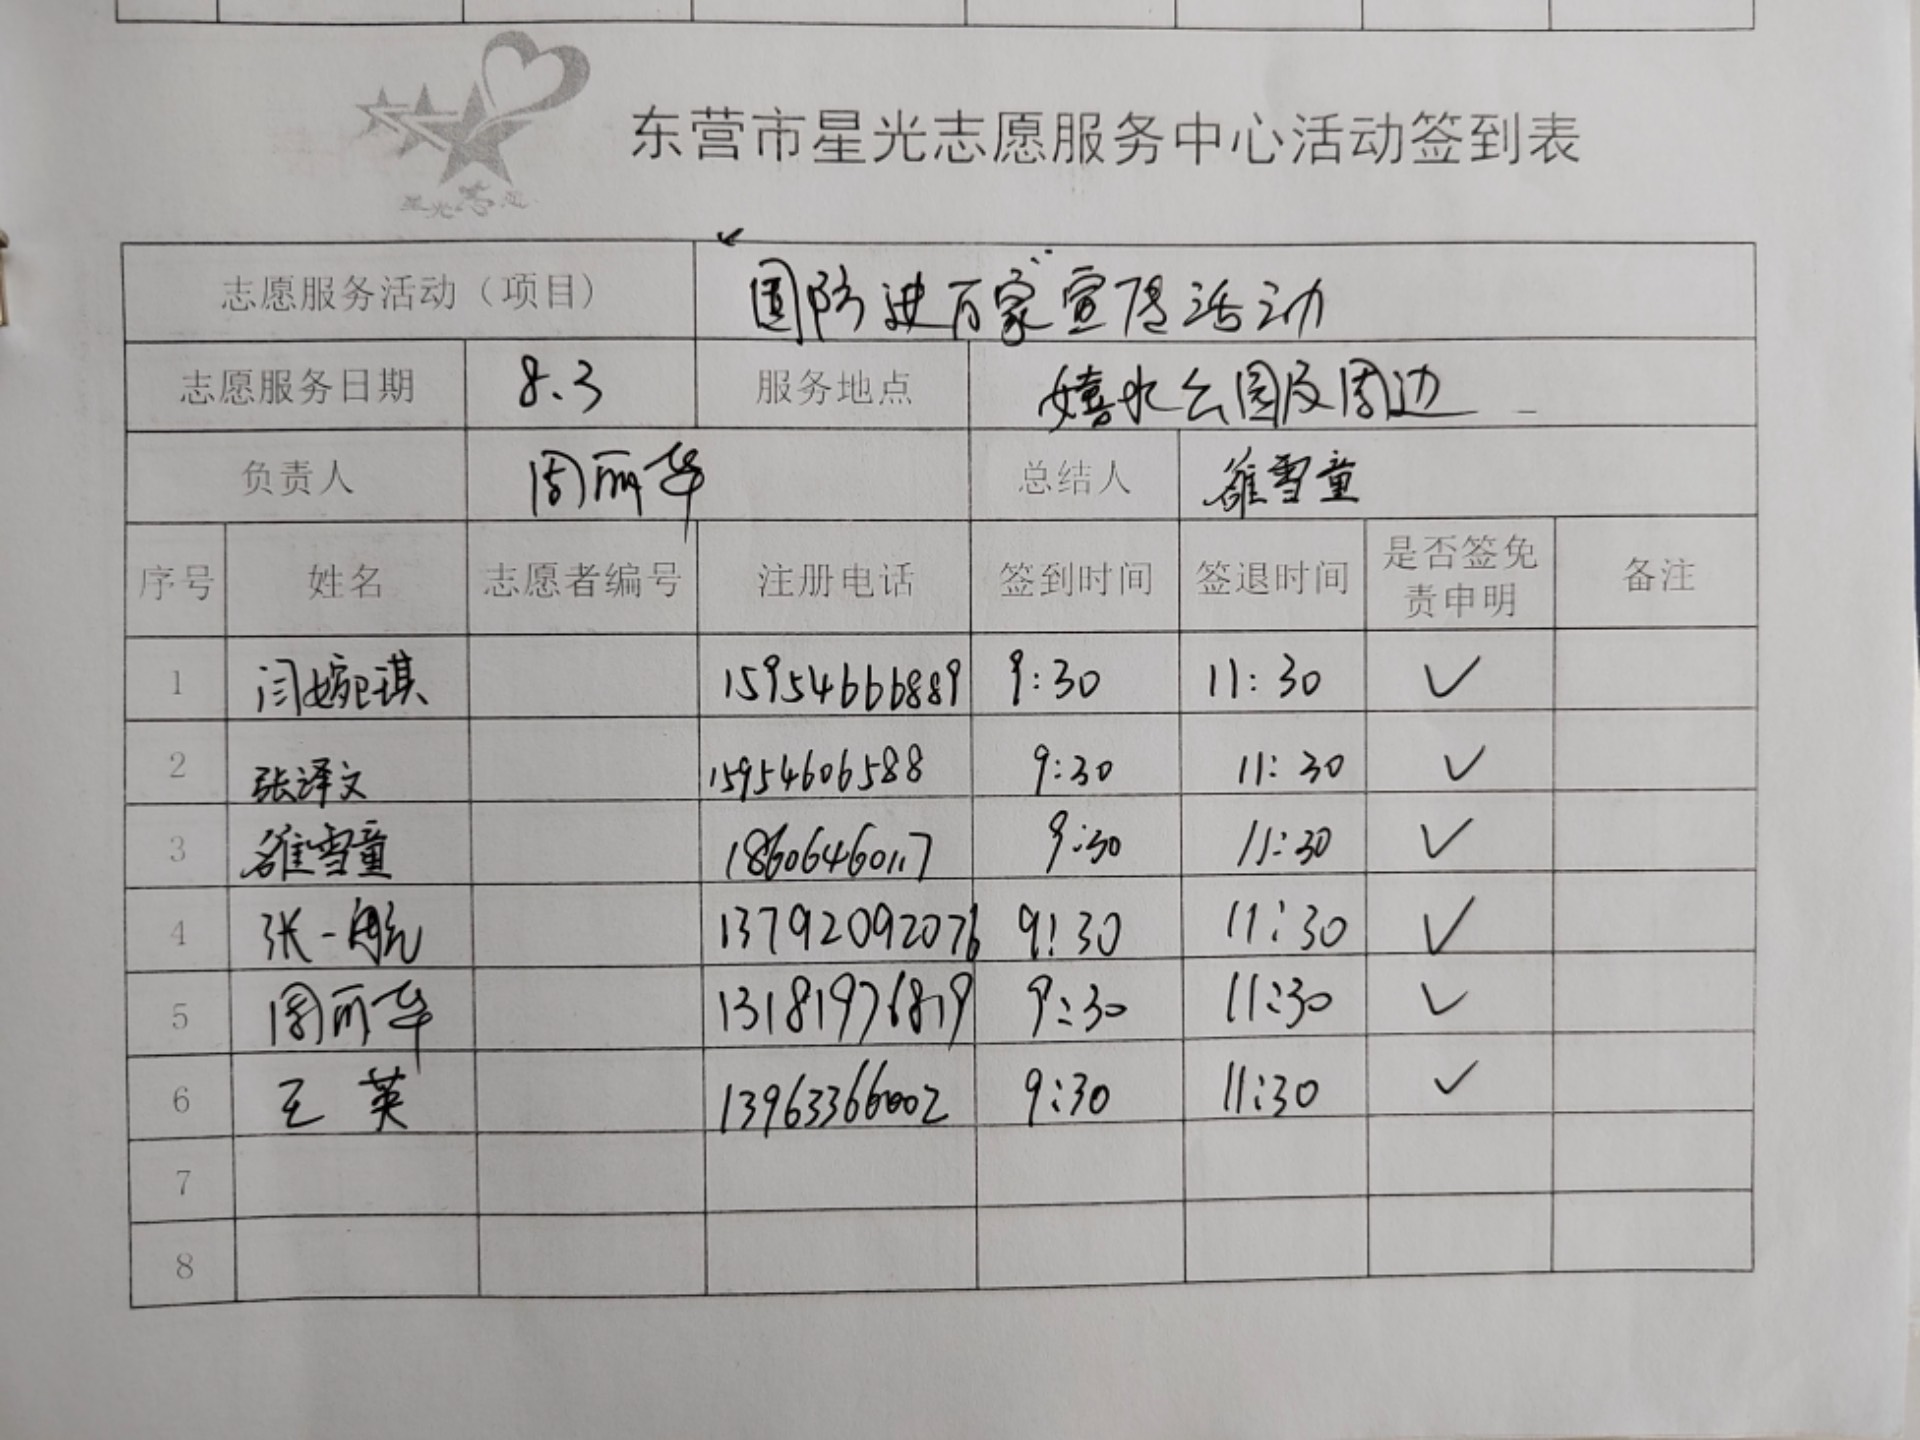 星光志愿
东营市星光志愿服务中心活动签到表
志愿服务活动（项目） 国防进百家宣传活动
志愿服务日期 8.3 服务地点 嬉水公园及周边
负责人 周丽华 总结人 雒雪童
序号 姓名 志愿者编号 注册电话 签到时间 签退时间 是否签免责申明 备注
1 闫婉琪 15954666889 9:30 11:30 ✓
2 张译文 15954606588 9:30 11:30 ✓
3 雒雪童 18606460117 9:30 11:30 ✓
4 张一航 13792092076 9:30 11:30 ✓
5 周丽华 13181976819 9:30 11:30 ✓
6 王英 13963366002 9:30 11:30 ✓
7
8